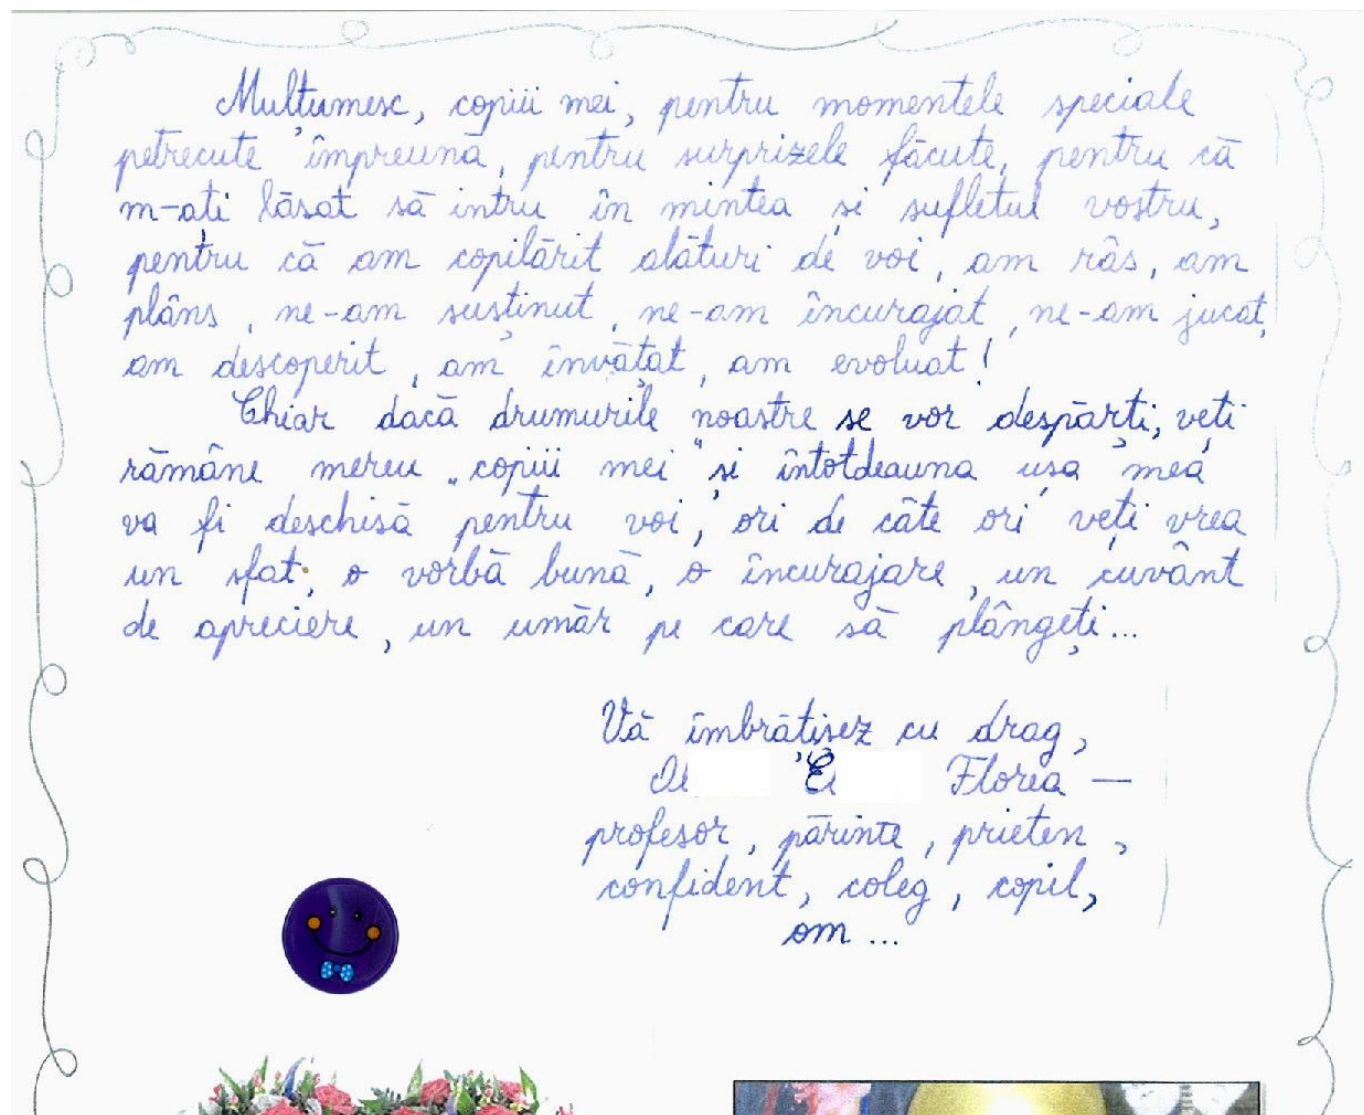 Mulțumesc, copiii mei, pentru momentele speciale
petrecute împreună, pentru surprizele făcute, pentru că
m-ați lăsat să intru în mintea și sufletul vostru,
pentru că am copilărit alături de voi, am râs, am
plâns, ne-am susținut, ne-am încurajat, ne-am jucat,
am descoperit, am învățat, am evoluat!
Chiar dacă drumurile noastre se vor despărți, veți
rămâne mereu „copiii mei" și întotdeauna ușa mea
va fi deschisă pentru voi, ori de câte ori veți vrea
un sfat, o vorbă bună, o încurajare, un cuvânt
de apreciere, un umăr pe care să plângeți...
Vă îmbrățișez cu drag,
Florea —
profesor, părinte, prieten,
confident, coleg, copil,
om...